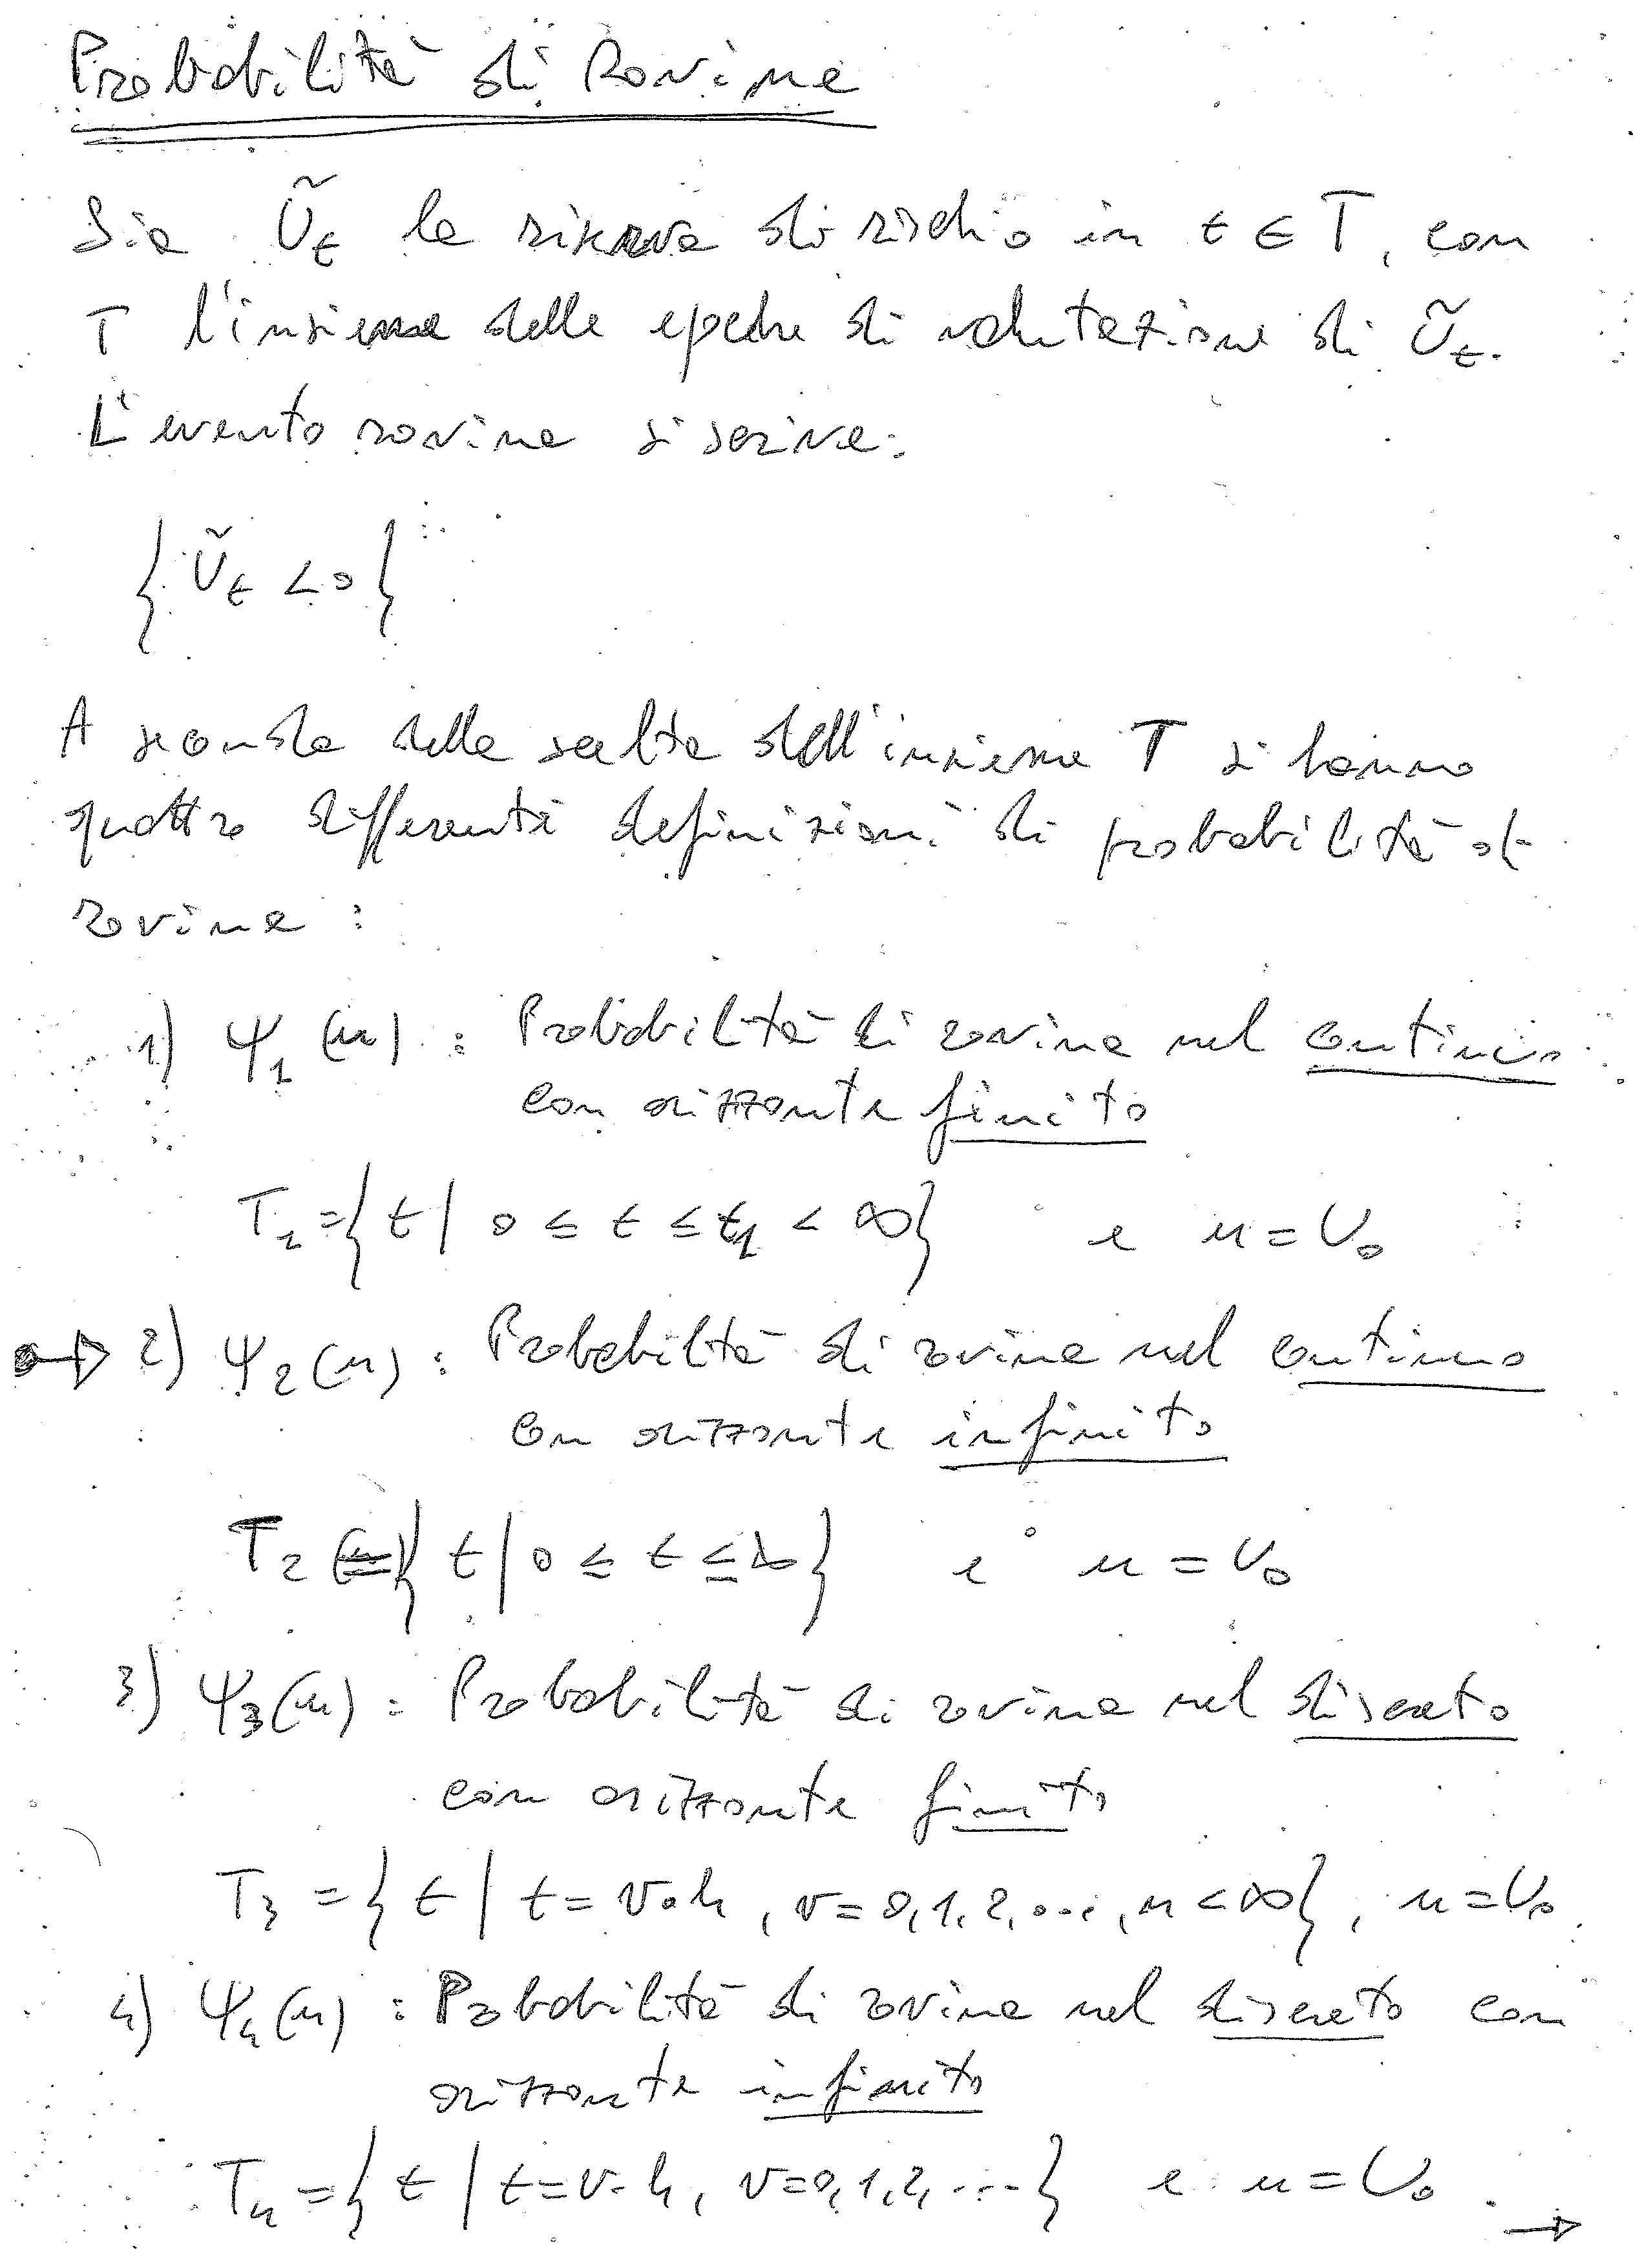 Probabilità di Rovina
Sia Ũt la riserva di rischio in t ∈ T, con
T l'insieme delle epoche di valutazione di Ũt.
L'evento rovina si scrive:
{Ũt < 0}
A seconda della scelta dell'insieme T si hanno
quattro differenti definizioni di probabilità di
rovina :
1) Ψ1(u) : Probabilità di rovina nel continuo
con orizzonte finito
T1 = {t | 0 ≤ t ≤ t1 < ∞} e u = U0
2) Ψ2(u) : Probabilità di rovina nel continuo
con orizzonte infinito
T2 = {t | 0 ≤ t ≤ ∞} e u = U0
3) Ψ3(u) : Probabilità di rovina nel discreto
con orizzonte finito
T3 = {t | t = v·h, v = 0,1,2,...,n < ∞}, u = U0
4) Ψ4(u) : Probabilità di rovina nel discreto con
orizzonte infinito
T4 = {t | t = v·h, v = 0,1,2,...} e u = U0 →